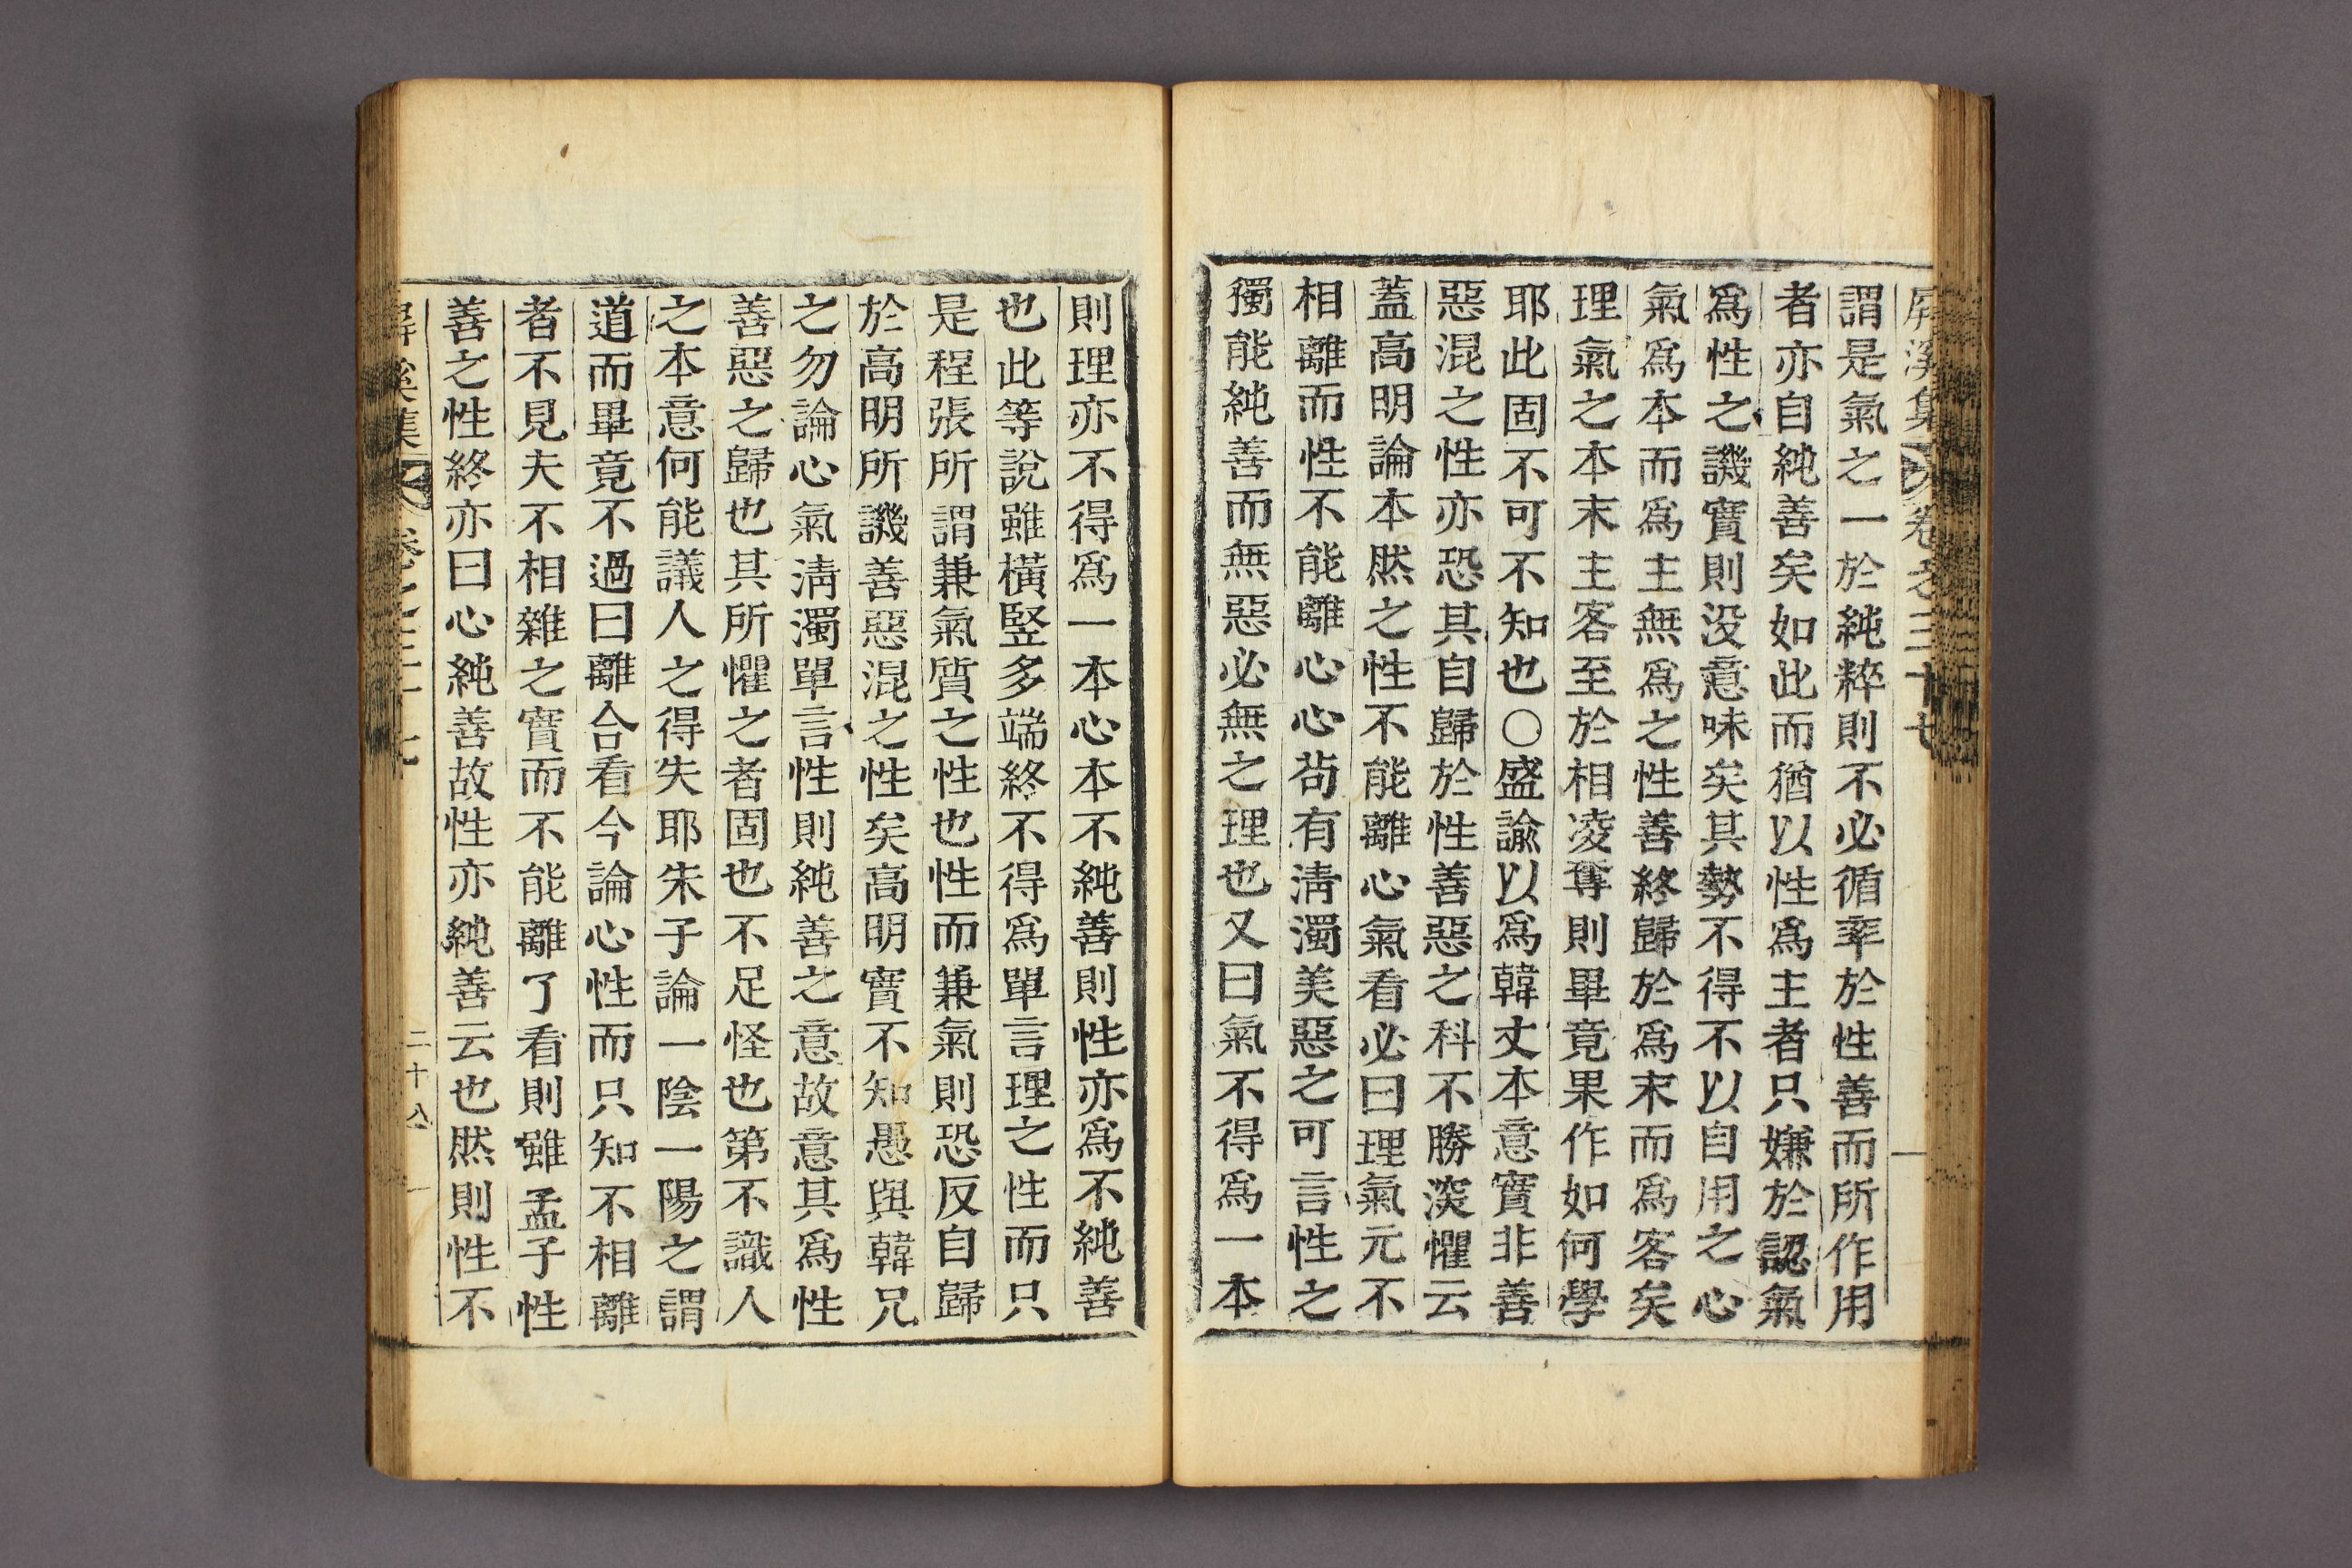 屛溪集 卷之三十七
謂是氣之一於純粹則不必循率於性善而所作用
者亦自純善矣如此而猶以性爲主者只嫌於認氣
爲性之譏實則没意味矣其勢不得不以自用之心
氣爲本而爲主無爲之性善終歸於爲末而爲客矣
理氣之本末主客至於相凌奪則畢竟果作如何學
耶此固不可不知也○盛諭以爲韓丈本意實非善
惡混之性亦恐其自歸於性善惡之科不勝㴱懼云
蓋高明論本然之性不能離心氣看必曰理氣元不
相離而性不能離心心苟有淸濁美惡之可言性之
獨能純善而無惡必無之理也又曰氣不得爲一本
則理亦不得爲一本心本不純善則性亦爲不純善
也此等說雖橫竪多端終不得爲單言理之性而只
是程張所謂兼氣質之性也性而兼氣則恐反自歸
於高明所譏善惡混之性矣高明實不知愚與韓兄
之勿論心氣淸濁單言性則純善之意故意其爲性
善惡之歸也其所懼之者固也不足怪也第不識人
之本意何能議人之得失耶朱子論一陰一陽之謂
道而畢竟不過曰離合看今論心性而只知不相離
者不見夫不相雜之實而不能離了看則雖孟子性
善之性終亦曰心純善故性亦純善云也然則性不
屛溪集 卷之三十七 二十八